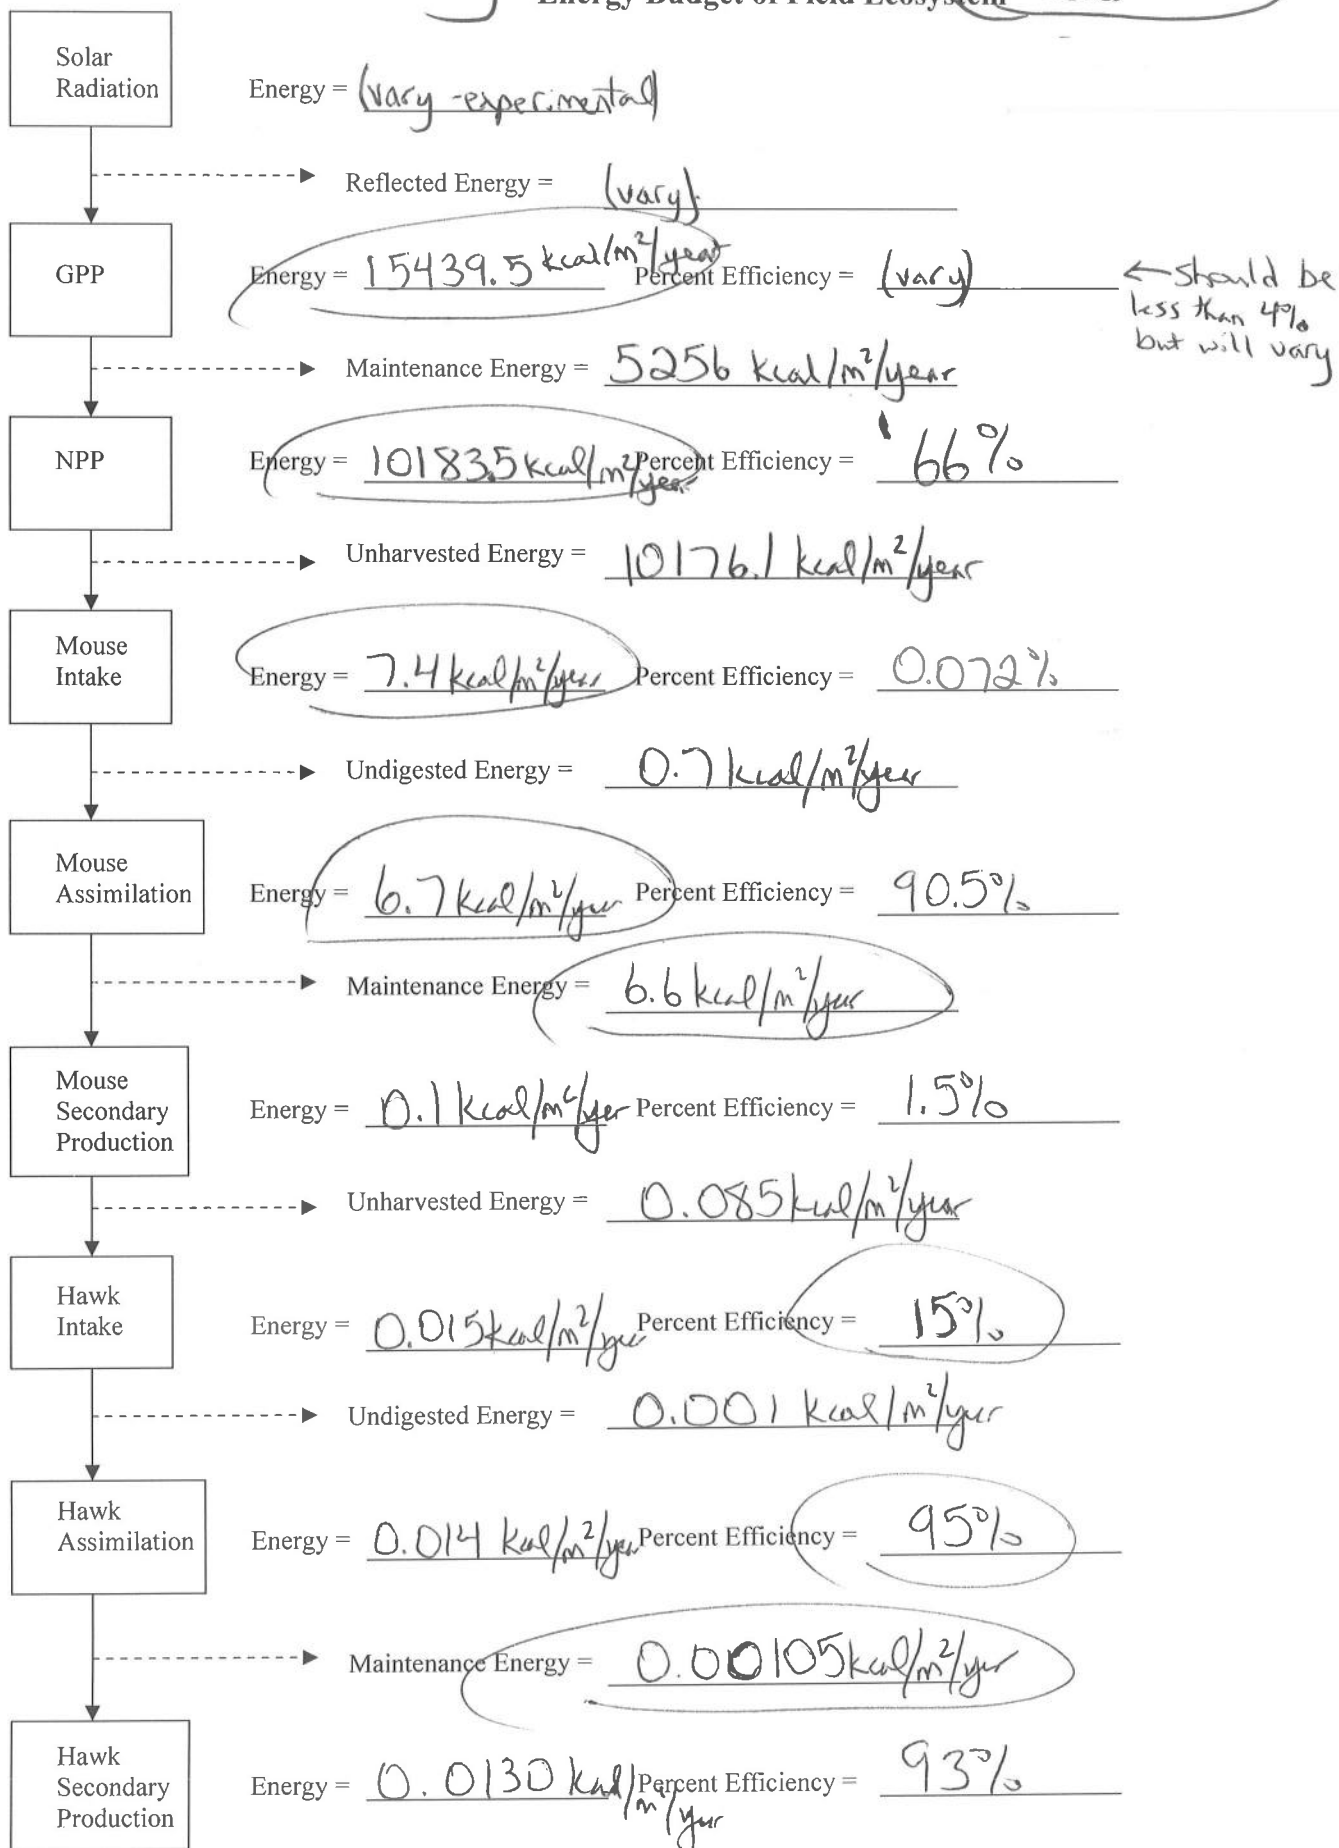 Energy Budget of Field Ecosystem
Solar
Radiation
Energy = (vary - experimental)
Reflected Energy = (vary)
GPP
Energy = 15439.5 kcal/m²/year Percent Efficiency = (vary)
← should be
less than 4%
but will vary
Maintenance Energy = 5256 kcal/m²/year
NPP
Energy = 10183.5 kcal/m²/year Percent Efficiency = 66%
Unharvested Energy = 10176.1 kcal/m²/year
Mouse
Intake
Energy = 7.4 kcal/m²/year Percent Efficiency = 0.072%
Undigested Energy = 0.7 kcal/m²/year
Mouse
Assimilation
Energy = 6.7 kcal/m²/year Percent Efficiency = 90.5%
Maintenance Energy = 6.6 kcal/m²/year
Mouse
Secondary
Production
Energy = 0.1 kcal/m²/year Percent Efficiency = 1.5%
Unharvested Energy = 0.085 kcal/m²/year
Hawk
Intake
Energy = 0.015 kcal/m²/year Percent Efficiency = 15%
Undigested Energy = 0.001 kcal/m²/year
Hawk
Assimilation
Energy = 0.014 kcal/m²/year Percent Efficiency = 95%
Maintenance Energy = 0.00105 kcal/m²/year
Hawk
Secondary
Production
Energy = 0.0130 kcal/m²/year Percent Efficiency = 93%